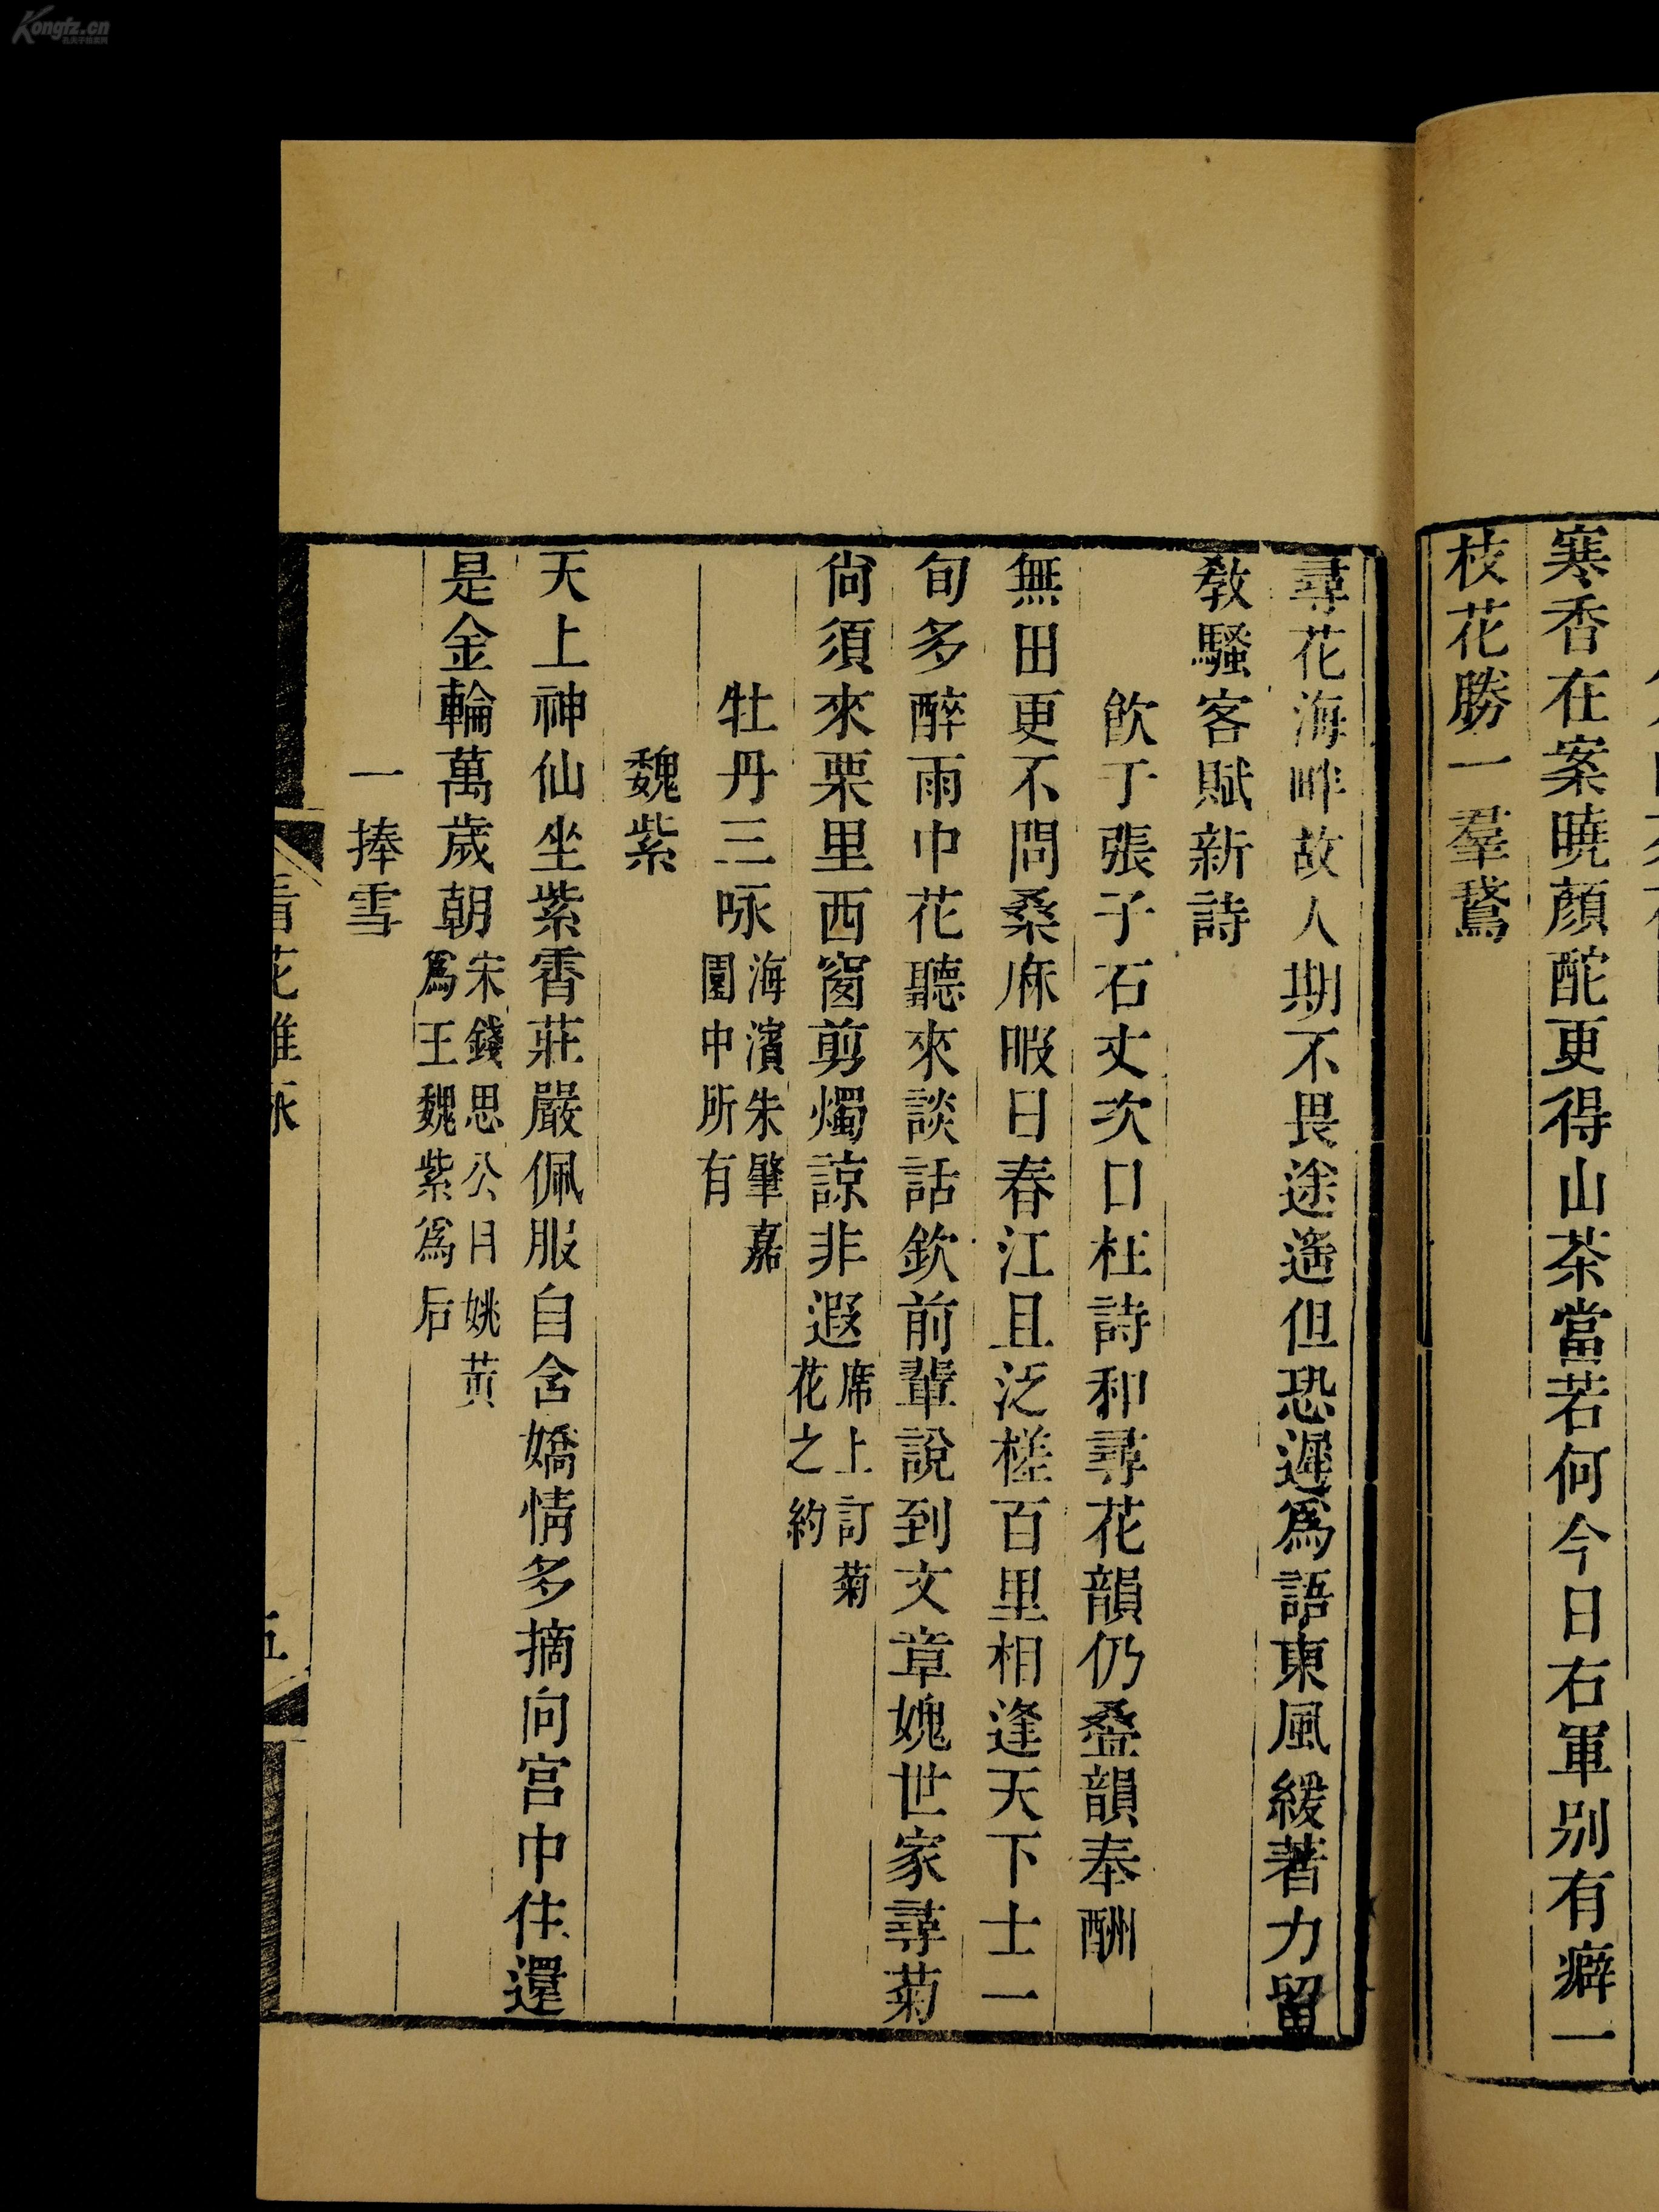 寒香在案曉顏酡更得山茶當若何今日右軍別有癖一
枝花勝一羣鵞
尋花海畔故人期不畏途遙但恐遲爲語東風緩著力留
教騷客賦新詩
飲丁張子石丈次口枉詩和尋花韻仍叠韻奉酬
無田更不問桑麻暇日春江且泛槎百里相逢天下士一
旬多醉雨巾花聽來談話欽前輩說到文章媿世家尋菊
尙須來栗里西窗剪燭諒非遐席上訂菊花之約
牡丹三咏海濱朱肇嘉園中所有
魏紫
天上神仙坐紫霄莊嚴佩服自含嬌情多摘向宫中住還
是金輪萬歲朝宋錢思公曰姚黃爲王魏紫爲后
一捧雪
看花雜咏
五
Kongfz.cn
孔夫子旧书网